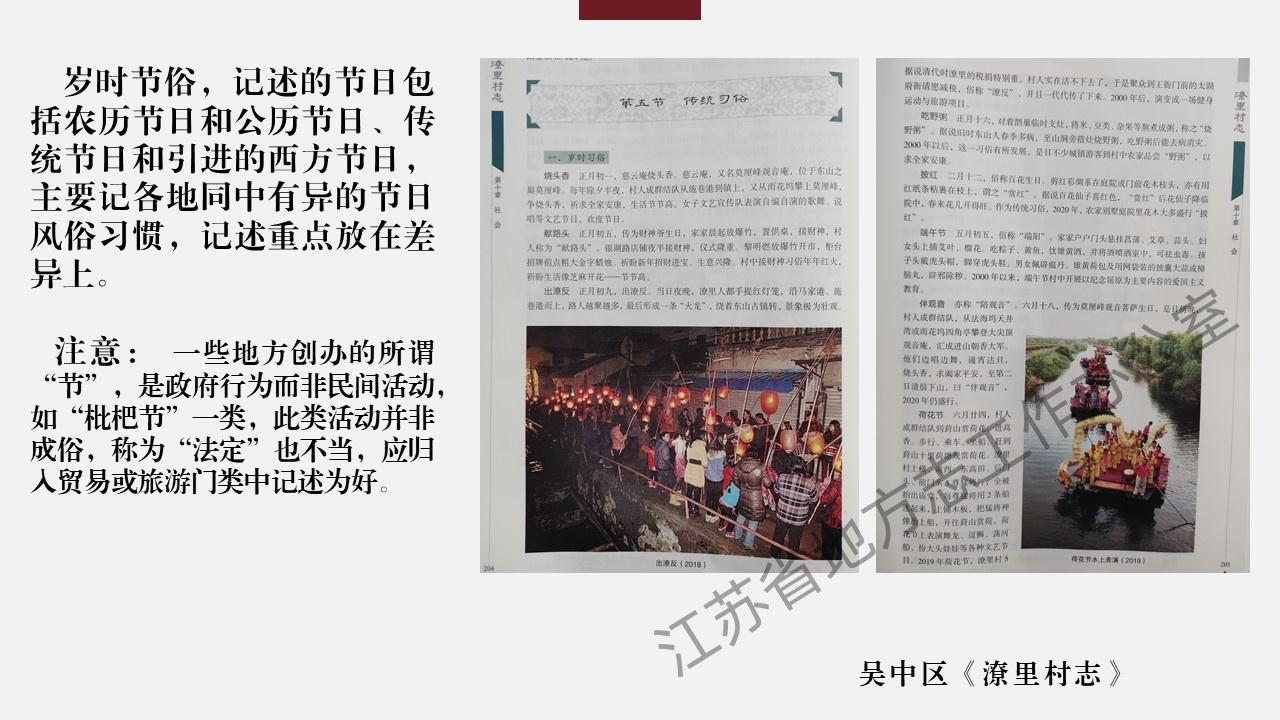 岁时节俗，记述的节日包
括农历节日和公历节日、传
统节日和引进的西方节日，
主要记各地同中有异的节日
风俗习惯，记述重点放在差
异上。
注意： 一些地方创办的所谓
“节”，是政府行为而非民间活动，
如“枇杷节”一类，此类活动并非
成俗，称为“法定”也不当，应归
入贸易或旅游门类中记述为好。
潦里村志
第十章 社会
第五节 传统习俗
一、岁时习俗
烧头香 正月初一，慈云庵烧头香。慈云庵，又名莫厘峰观音庵，位于东山之
巅莫厘峰。每年除夕半夜，村人成群结队从施巷港到镇上，又从雨花坞攀上莫厘峰，
争烧头香，祈求全家安康，生活节节高。女子文艺宣传队表演自编自演的歌舞、说
唱等文艺节目，欢度节日。
献路头 正月初五，传为财神爷生日，家家晨起放爆竹，置供桌，接财神，村
人称为“献路头”。银湖路店铺夜半接财神，仪式隆重。黎明燃放爆竹开市，柜台
招牌前点粗大金字蜡烛。祈盼新年招财进宝、生意兴隆。村中接财神习俗年年红火，
祈盼生活像芝麻开花——节节高。
出潦反 正月初九，出潦反。当日夜晚，潦里人都手提红灯笼，沿马家港、施
巷港而上，路人越聚越多，最后形成一条“火龙”，绕着东山古镇转，景象极为壮观。
出潦反（2018）
204
据说清代时潦里的税捐特别重，村人实在活不下去了，于是聚众到王衙门前的太湖
府衙请愿减税，俗称“潦反”，并且一代代传了下来。2000年后，演变成一场健身
运动与旅游项目。
吃野粥 正月十六，对着鹊巢临时支灶，将米、豆类、杂果等熬煮成粥，称之“烧
野粥”。据说旧时东山人春季多病，至山涧旁搭灶烧野粥，吃野粥后能去病消灾。
2000年以后，这一习俗有所发展，是日不少城镇游客到村中农家品会“野粥”，以
求全家安康。
披红 二月十二，俗称百花生日。剪红彩绸系在庭院或门前花木枝头，亦有用
红纸条粘裹在枝上，谓之“赏红”。据说百花仙子喜红色，“赏红”后花仙子降临
院中，春来花儿开得旺。作为传统习俗，2020年，农家别墅庭院里花木大多盛行“披
红”。
端午节 五月初五，俗称“端阳”。家家户户门头悬挂菖蒲、艾草、蒜头。妇
女头上插艾叶、榴花。吃粽子、黄鱼，饮雄黄酒，并将酒喷洒室中，可祛虫毒。孩
子头戴虎头帽，脚穿虎头鞋。男女佩辟瘟丹、雄黄荷包及用网袋装的独囊大蒜或樟
脑丸，辟邪除秽。2000年以来，端午节村中开展以纪念屈原为主要内容的爱国主义
教育。
伴观音 亦称“陪观音”。六月十八，传为莫厘峰观音菩萨生日，是日傍晚，
村人成群结队，从法海坞天井
湾或雨花坞四角亭攀登大尖顶
观音庵，汇成进山朝香大军。
他们边唱边舞，通宵达旦，
烧头香，求阖家平安，至第二
日清晨下山，曰“伴观音”，
2020年仍盛行。
荷花节 六月廿四，村人
成群结队到葑山赏荷花、进高
香。步行、乘车、坐船，赶到
葑山十里荷塘观赏荷花。潦里
连起来，上铺木板，把猛将神
像抬上船，开往葑山赏荷。荷
花节上表演舞龙、逗狮、荡河
船、扮大头娃娃等各种文艺节
目。2019年荷花节，潦里村5
荷花节水上表演（2019）
潦里村志
第十章 社会
205
江苏省地方志工作办公室
吴中区《潦里村志》